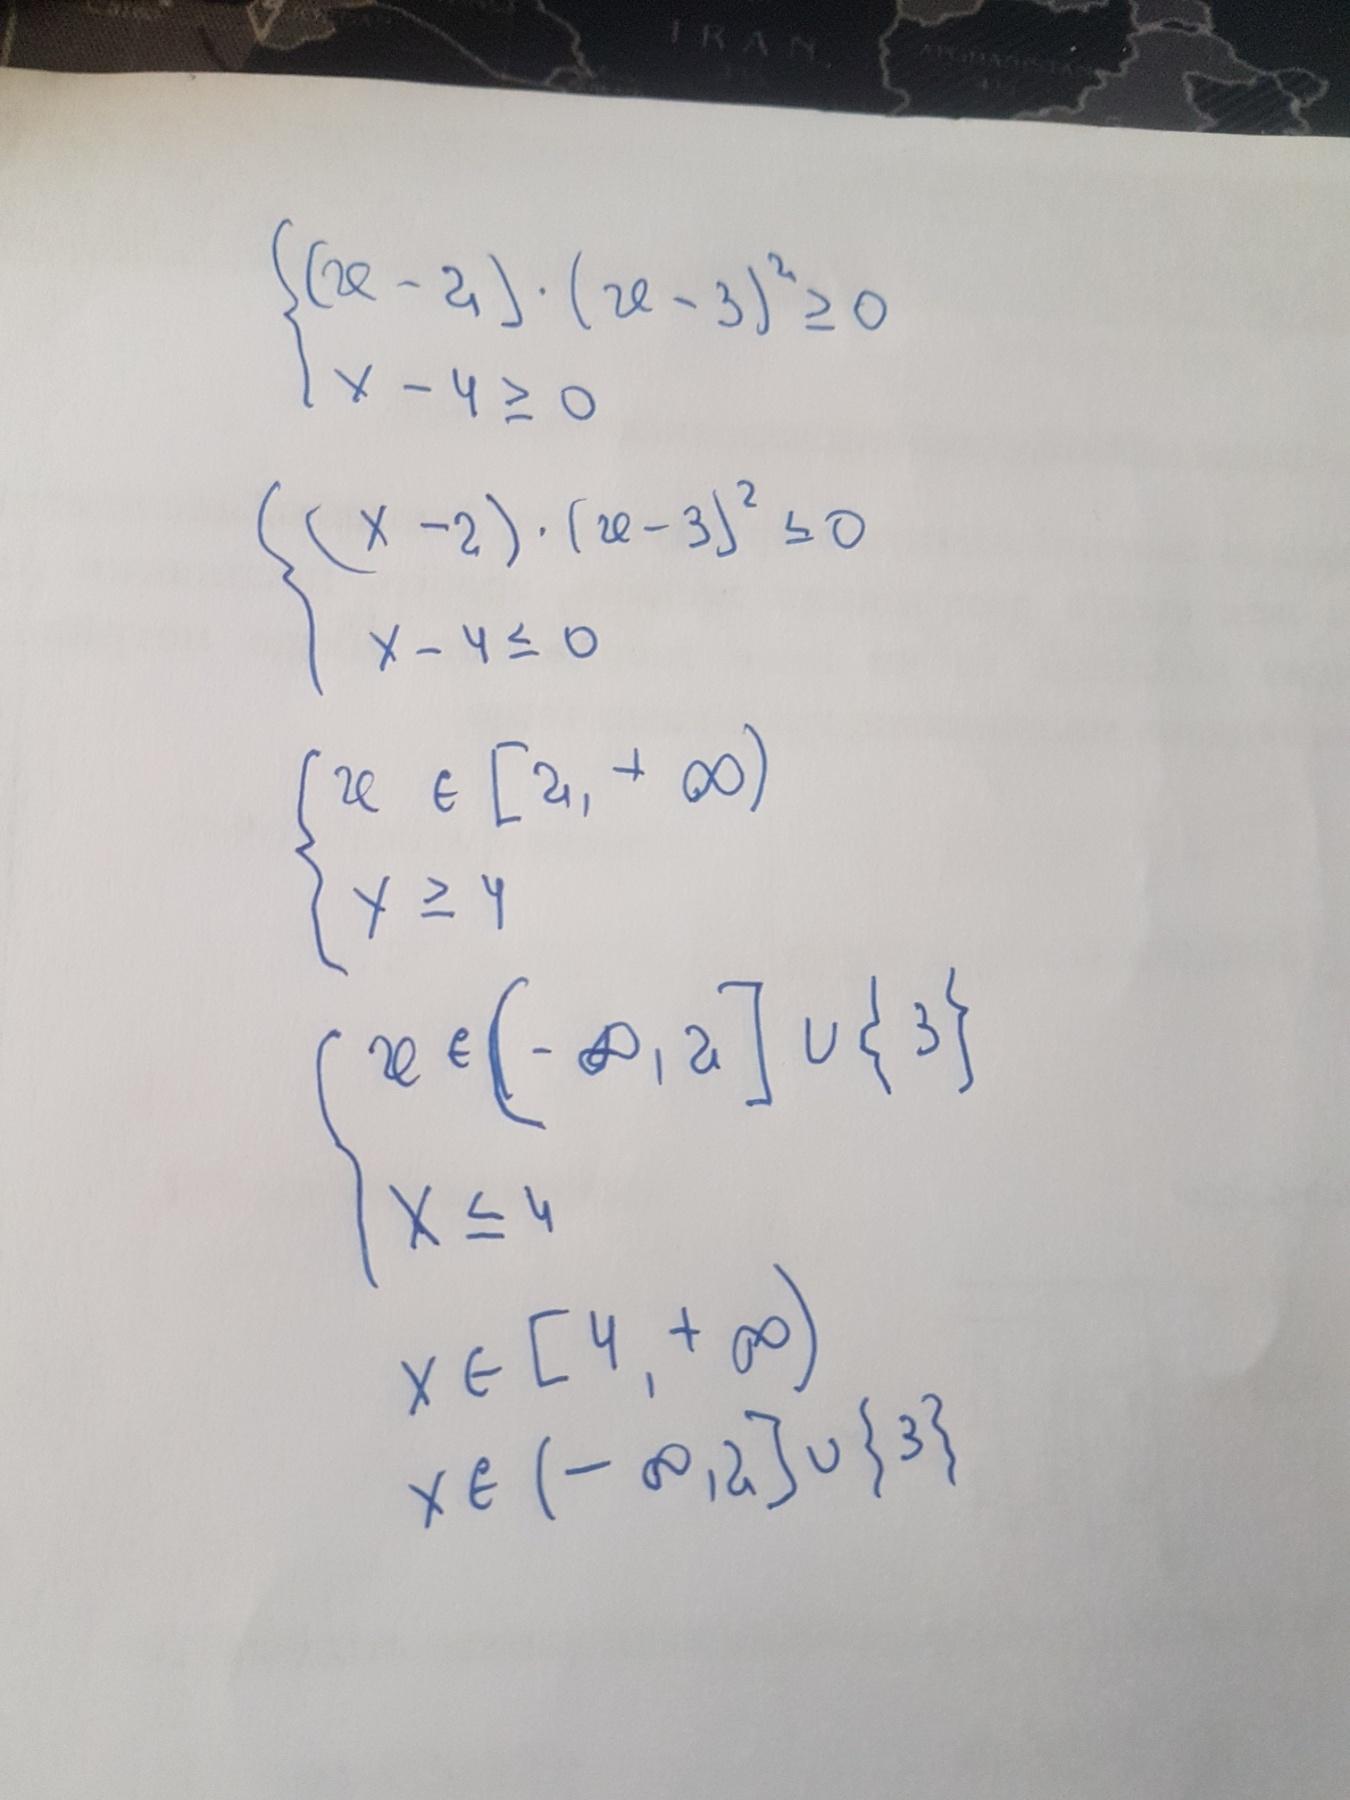 IRAN
AFGHANISTAN
{(x - 2) · (x - 3)² ≥ 0
x - 4 ≥ 0
{(x - 2) · (x - 3)² ≤ 0
x - 4 ≤ 0
{x ∈ [2, + ∞)
x ≥ 4
{x ∈ (- ∞, 2] ∪ {3}
x ≤ 4
x ∈ [4, + ∞)
x ∈ (- ∞, 2] ∪ {3}